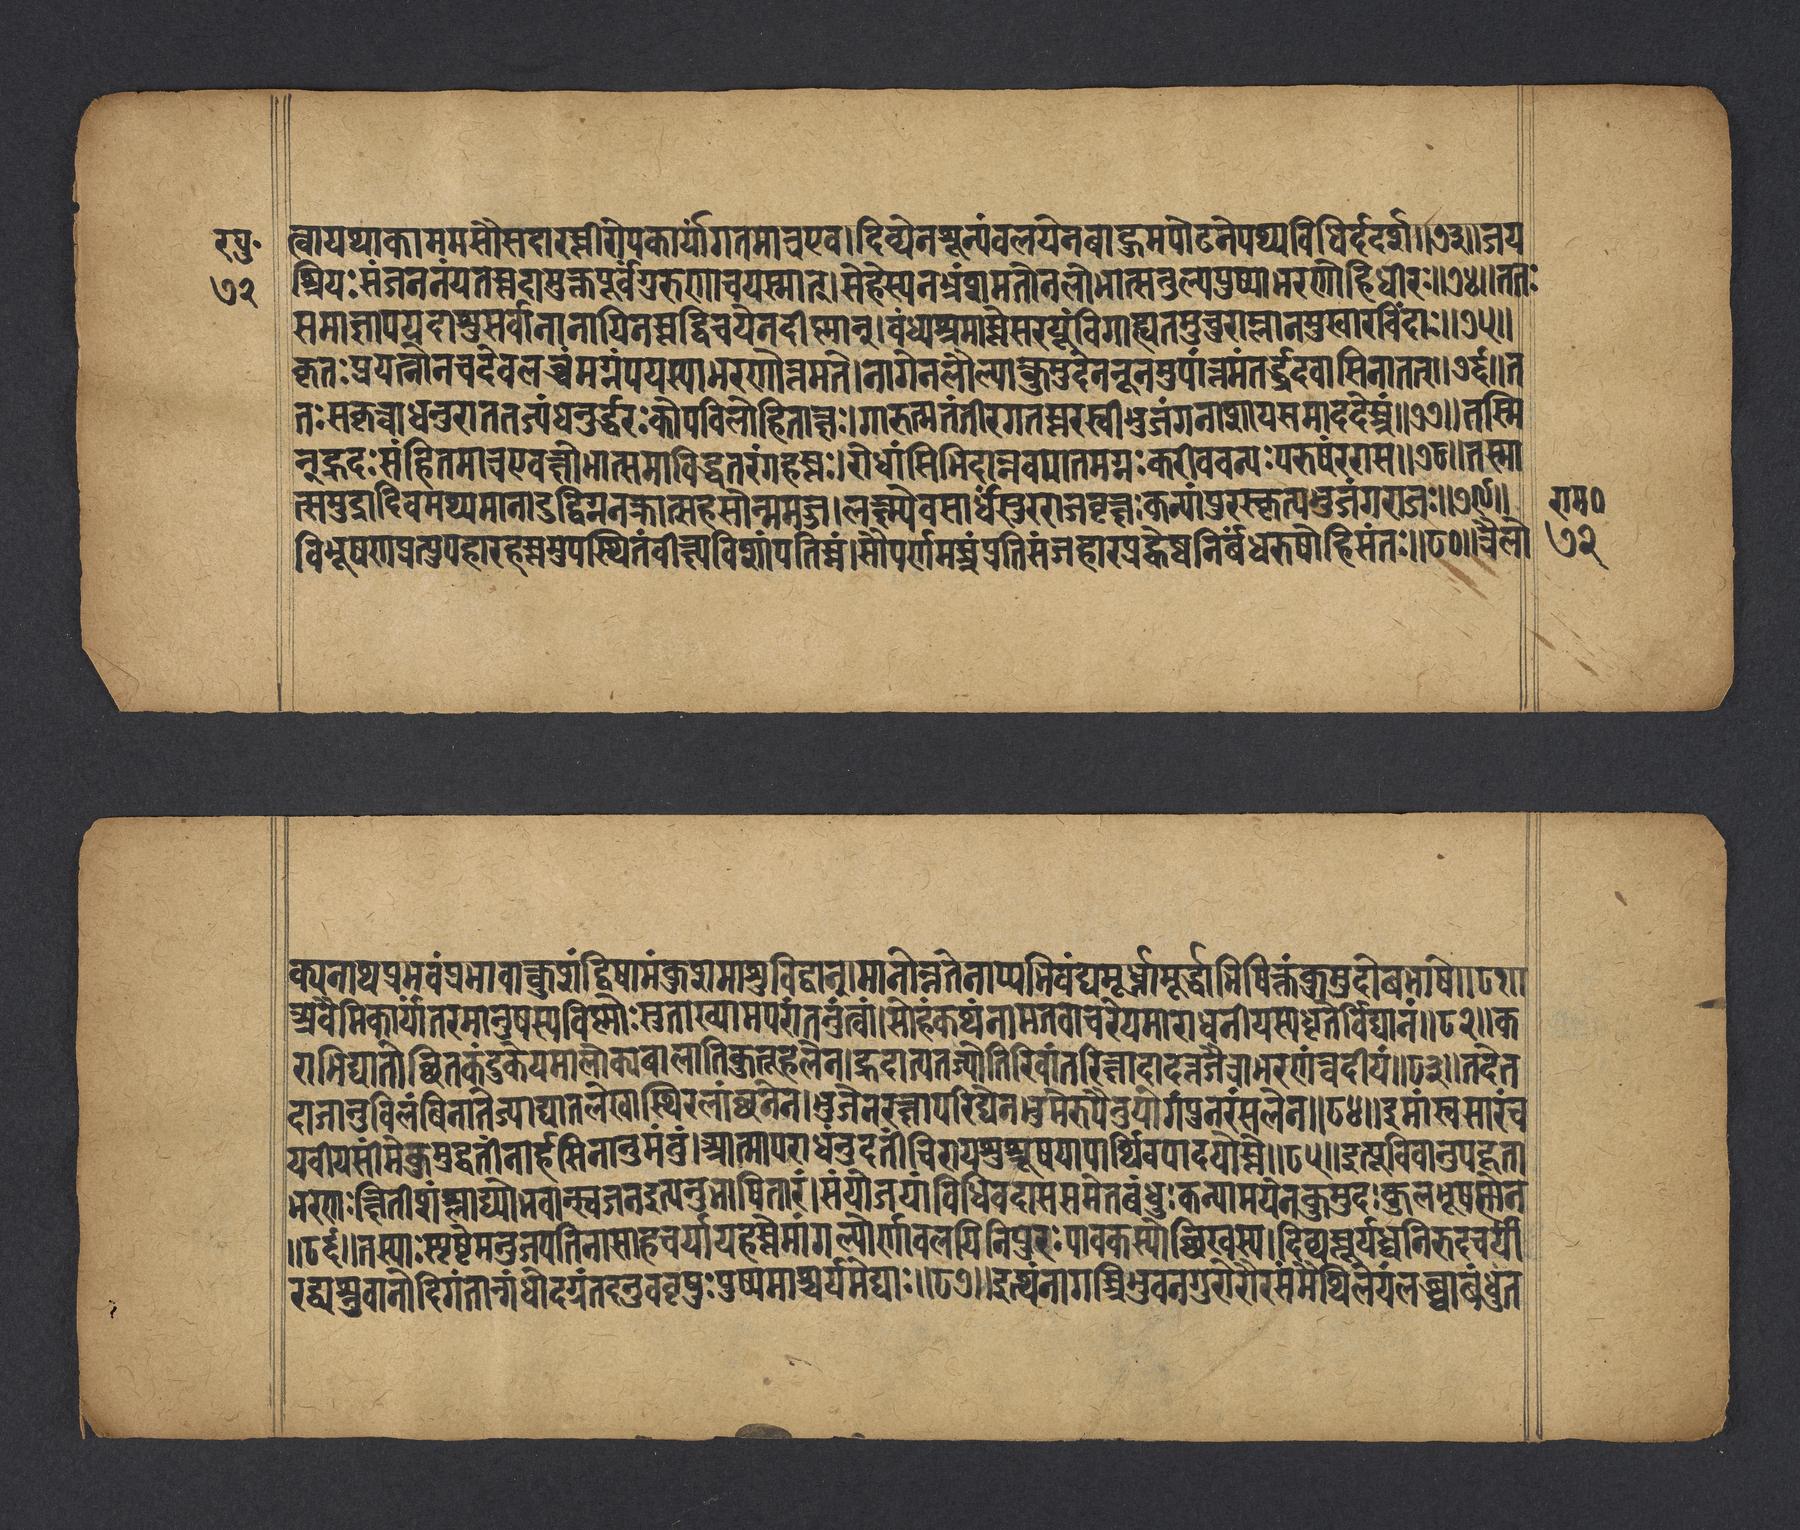 रघु॰
७२
त्वायथाकामममसौसदारस्तीरोपकार्यांगतमात्रएव।दिव्येनशून्यंवलयेनबाहुमपोढनेपथ्यविधिर्ददर्श॥७३॥जय
श्रियःसंजननंयतस्तदामुक्तपूर्वंगुरुणाचयस्मात्।सेहेस्यनभ्रंशमतोनलोभात्सतुल्यपुष्पाभरणोहिधीरः॥७४॥ततः
समाज्ञापयदाशुसर्वानानायिनस्तद्विचयेनदीष्णान्।वंध्यश्रमास्तेसरयूंविगाह्यतमूचुराम्लानमुखारविंदाः॥७५॥
कृतःप्रयत्नोनचदेवलब्धंमग्नंपयस्याभरणोत्तमंते।नागेनलौल्यात्कुमुदेननूनमुपात्तमंतर्ह्रदवासिनातत्॥७६॥त
तःसकृत्वाधनुराततज्यंधनुर्द्धरःकोपविलोहिताक्षः।गारुत्मतंतीरगतस्तरस्वीभुजंगनाशायसमाददेस्त्रं॥७७॥तस्मि
न्ह्रदःसंहितमात्रएवक्षोभात्समाविद्धतरंगहस्तः।रोधांसिभिंदन्नवपातमग्नःकरीववन्यःपरुषंररास॥७८॥तस्मा
त्समुद्रादिवमथ्यमानादुद्विग्ननक्रात्सहसोन्ममज्ज।लक्ष्म्येवसार्धंसुरराजवृक्षःकन्यांपुरस्कृत्यभुजंगराजः॥७९॥
विभूषणप्रत्युपहारहस्तमुपस्थितंवीक्ष्यविशांपतिस्तं।सौपर्णमस्त्रंप्रतिसंजहारप्रह्वेष्वनिर्बंधरुषोहिसंतः॥८०॥त्रैलो
राम०
७२
क्यनाथप्रभवंप्रभावात्कुशंद्विषामंकुशमाशुविद्वान्।मानोन्नतेनाप्यभिवंद्यमूर्ध्नामूर्द्धाभिषिक्तंकुमुदोबभाषे॥८१॥
अवैमिकार्यांतरमानुषस्यविष्णोःसुताख्यामपरांतनुंत्वां।सोहंकथंनामतवाचरेयमाराधनीयस्यधृतेर्विघ्नानं॥८२॥क
राभिघातोत्थितकंदुकेयमालोक्यबालातिकुतूहलेन।ह्रदात्पतज्योतिरिवांतरिक्षादादत्तजैत्राभरणंत्वदीयं॥८३॥तदेत
दाजानुविलंबिनातेज्याघातलेखास्थिरलांछनेन।भुजेनरक्षापरिघेनभूमेरुपैतुयोगंपुनरंसलेन॥८४॥इमांस्वसारंच
यवीयसींमेकुमुद्वतींनार्हसिनानुमंतुं।आत्मापराधंनुदतींचिरायशुश्रूषयापार्थिवपादयोस्ते॥८५॥इत्यूचिवानुपहृता
भरणःक्षितीशंश्लाघ्योभवान्स्वजनइत्यनुभाषितारं।संयोजयांविधिवदाससमेतबंधुःकन्यामयेनकुमुदःकुलभूषणेन
॥८६॥तस्याःस्पृष्टेमनुजपतिनासाहचर्यायहस्तेमांगल्योर्णावलयिनिपुरःपावकस्योच्छिखस्य।दिव्यस्तूर्यध्वनिरुदचरर्यौ
रद्व्यश्नुवानोदिगंतान्गंधोदग्रंतदनुववृषुःपुष्पमाश्चर्यमेघाः॥८७॥इत्थंनागस्त्रिभुवनगुरोरौरसंमैथिलेयंलब्ध्वाबंधुंत